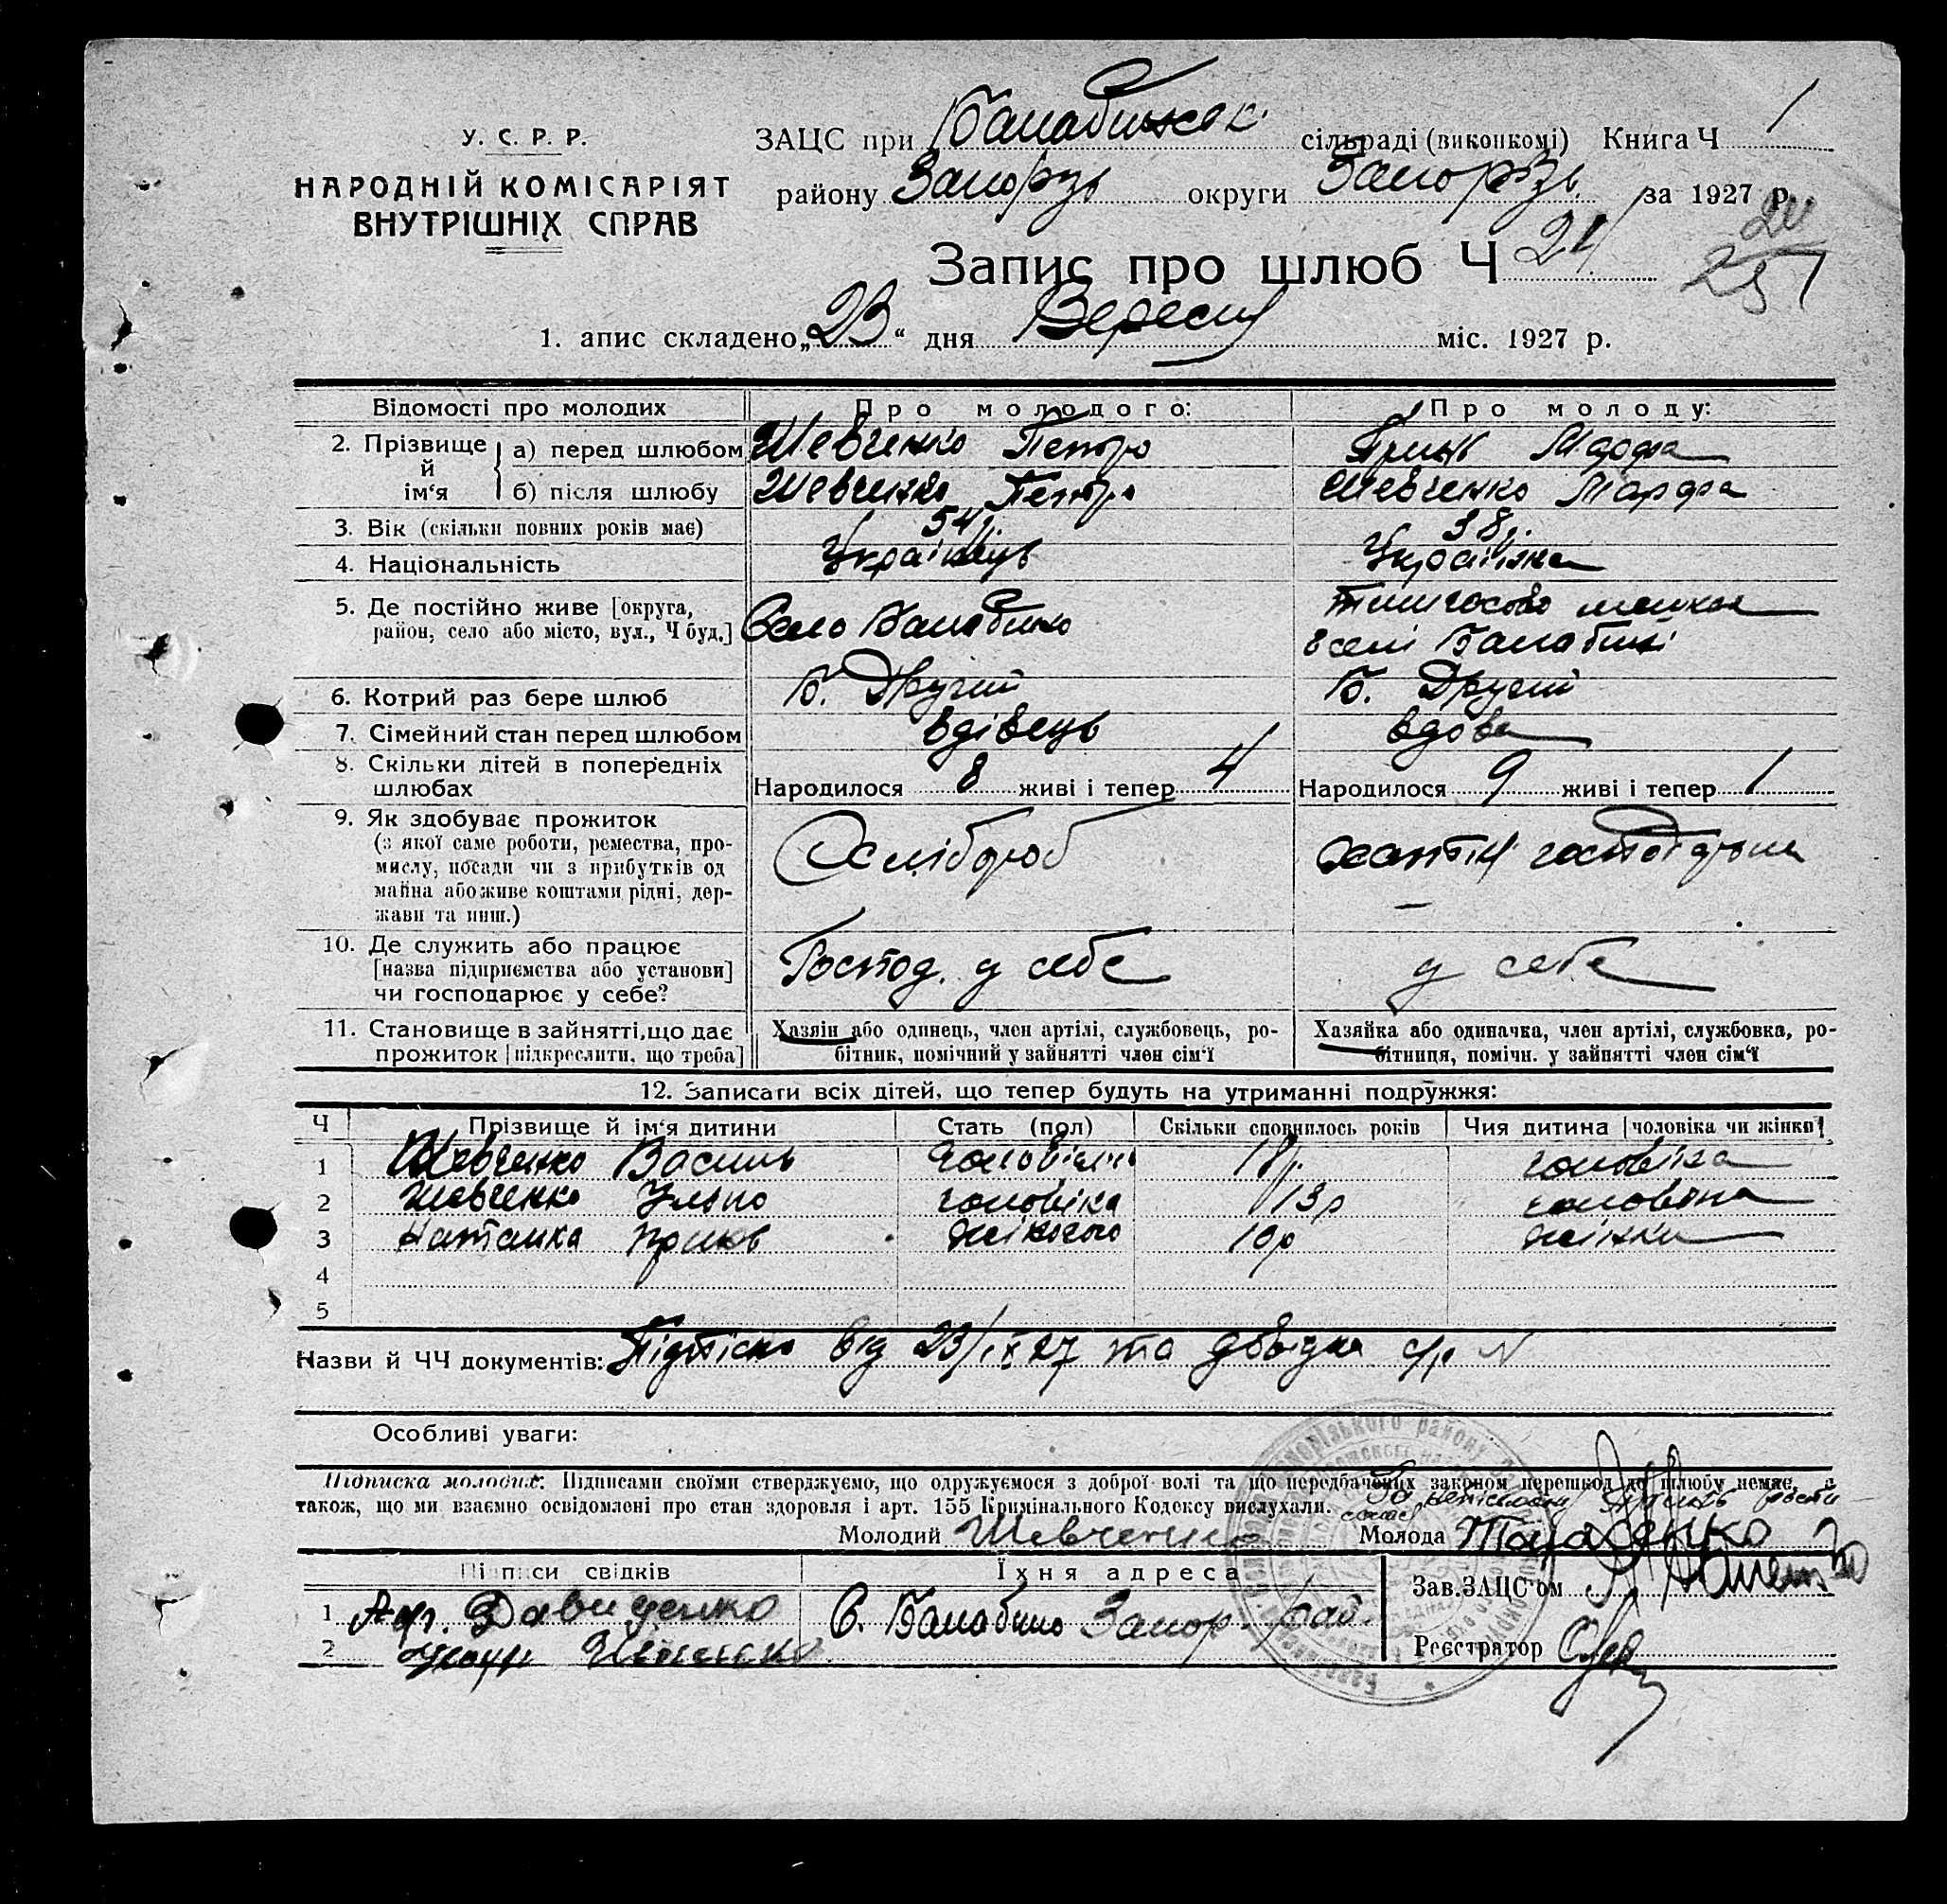 У. С. Р. Р.
НАРОДНІЙ КОМІСАРІЯТ
ВНУТРІШНІХ СПРАВ
ЗАЦС при Балабинськ. сільраді (виконкомі) Книга Ч 1
району Запорізь округи Запорізь за 1927 р.
Запис про шлюб Ч 21
20
25
1. апис складено „23“ дня Вересня міс. 1927 р.
Відомості про молодих Про молодого: Про молоду:
2. Прізвище й ім‘я
а) перед шлюбом Шевченко Петро Марфа
б) після шлюбу Шевченко Петро Шевченко Марфа
3. Вік (скільки повних років має) 54 р. 38 р.
4. Національність Українець Українка
5. Де постійно живе [округа, Село Балабино Тимчасово мешкає
район, село або місто, вул., Ч буд.] в селі Балабині
6. Котрий раз бере шлюб Б. Другий Б. Другий
7. Сімейний стан перед шлюбом вдівець вдова
8. Скільки дітей в попередніх
шлюбах Народилося 8 живі і тепер 4 Народилося 9 живі і тепер 1
9. Як здобуває прожиток
(з якої саме роботи, ремества, про- Хлібороб
мислу, посади чи з прибутків од
майна або живе коштами рідні, дер-
жави та инш.)
10. Де служить або працює
[назва підприємства або установи] Господ. у себе у себе
чи господарює у себе?
11. Становище в зайнятті, що дає Хазяїн або одинець, член артілі, службовець, ро- Хазяйка або одиначка, член артілі, службовка, ро-
прожиток [підкреслити, що треба] бітник, помічний у зайнятті член сім‘ї бітниця, помічн. у зайнятті член сім‘ї
12. Записати всіх дітей, що тепер будуть на утриманні подружжя:
Ч Прізвище й ім‘я дитини Стать (пол) Скільки сповнилось років Чия дитина [чоловіка чи жінки]
1 Шевченко Василь 18 р. чоловіка
2 Шевченко чоловіка 13 р чоловіка
3 Наталка 10 р жінки
4
5
Назви й ЧЧ документів: Підпіска від 23/IX 27 та довідка с/р N
Особливі уваги:
Підписка молодих: Підписами своїми стверджуємо, що одружуємося з доброї волі та що передбачених законом перешкод до шлюбу немає, а
також, що ми взаємно освідомлені про стан здоровля і арт. 155 Кримінального Кодексу вислухали.
Молодий Шевченко Молода Тарасенко
Підписи свідків Їхня адреса Зав. ЗАЦС‘ом
1 Давиденко С. Балабино Запор. рай.
2 Реєстратор